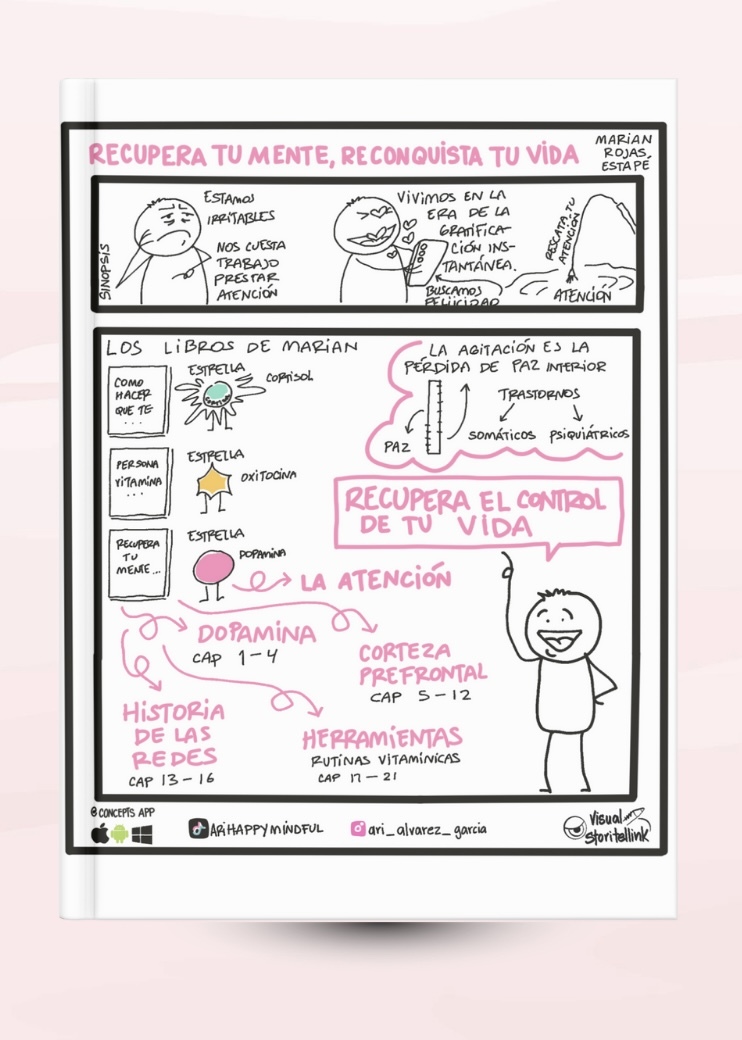 RECUPERA TU MENTE, RECONQUISTA TU VIDA
MARIAN
ROJAS
ESTAPÉ
SINOPSIS
ESTAMOS
IRRITABLES
NOS CUESTA
TRABAJO
PRESTAR
ATENCIÓN
VIVIMOS EN LA
ERA DE LA
GRATIFICA-
CIÓN INS-
TANTÁNEA.
BUSCAMOS
FELICIDAD
RESCATA TU
ATENCIÓN
ATENCIÓN
LOS LIBROS DE MARIAN
COMO
HACER
QUE TE
...
ESTRELLA
CORTISOL
PERSONA
VITAMINA
...
ESTRELLA
OXITOCINA
RECUPERA
TU
MENTE...
ESTRELLA
DOPAMINA
LA AGITACIÓN ES LA
PÉRDIDA DE PAZ INTERIOR
PAZ
TRASTORNOS
SOMÁTICOS PSIQUIÁTRICOS
RECUPERA EL CONTROL
DE TU VIDA
LA ATENCIÓN
DOPAMINA
CAP 1-4
CORTEZA
PREFRONTAL
CAP 5-12
HISTORIA
DE LAS
REDES
CAP 13-16
HERRAMIENTAS
RUTINAS VITAMÍNICAS
CAP 17-21
@CONCEPTS APP
ARIHAPPYMINDFUL
ari_alvarez_garcia
Visual
Storitellink